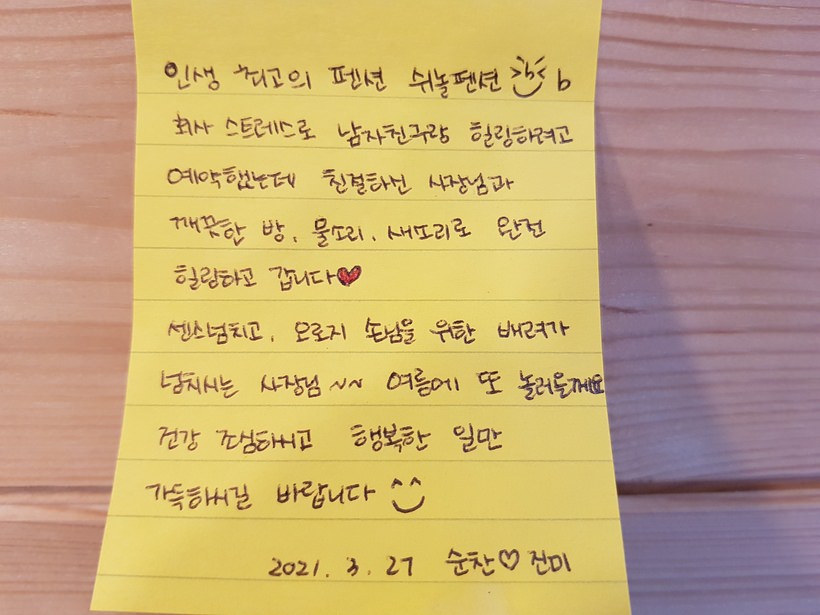 인생 최고의 펜션 쉬놀펜션 b
회사 스트레스로 남자친구랑 힐링하려고
예약했는데 친절하신 사장님과
깨끗한 방, 물소리, 새소리로 완전
힐링하고 갑니다♥
센스넘치고, 오로지 손님을 위한 배려가
넘치시는 사장님~~ 여름에 또 놀러올께요
건강 조심하시고 행복한 일만
가득하시길 바랍니다 ^^
2021. 3. 27 순찬♡진미